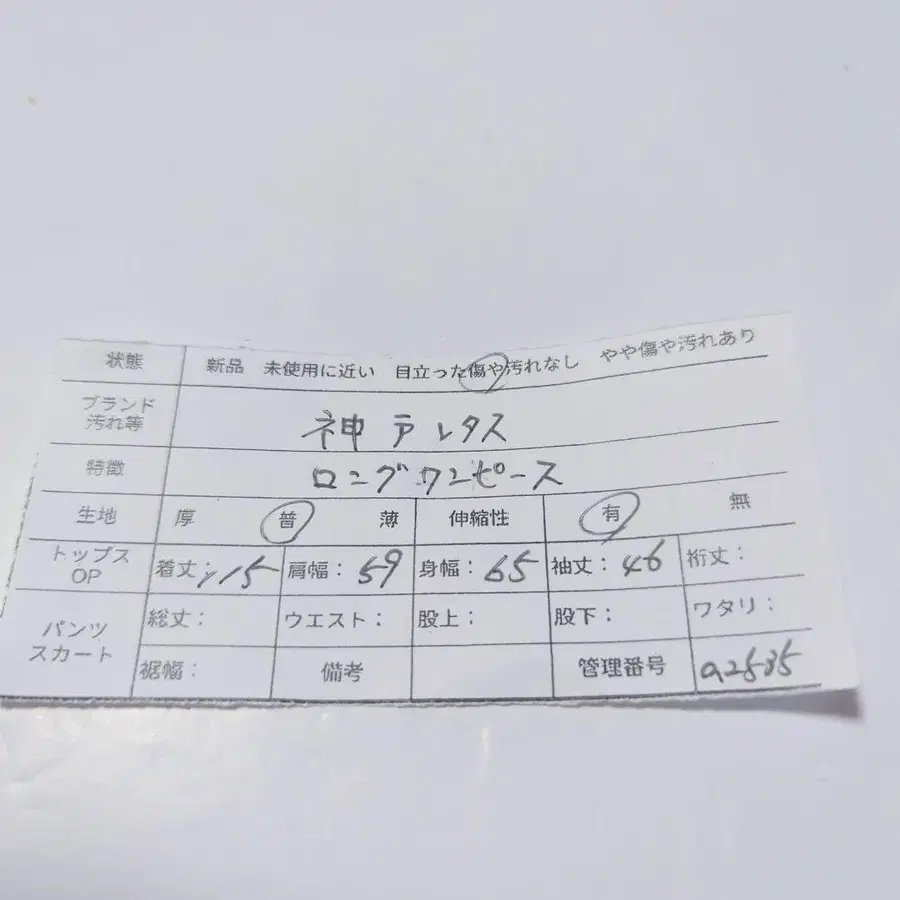 状態 新品 未使用に近い 目立った傷や汚れなし やや傷や汚れあり
ブランド
汚れ等
神戸レタス
特徴 ロングワンピース
生地 厚 普 薄 伸縮性 有 無
トップス
OP
着丈:115 肩幅:59 身幅:65 袖丈:46 裄丈:
パンツ
スカート
総丈: ウエスト: 股上: 股下: ワタリ:
裾幅: 備考 管理番号 a2535